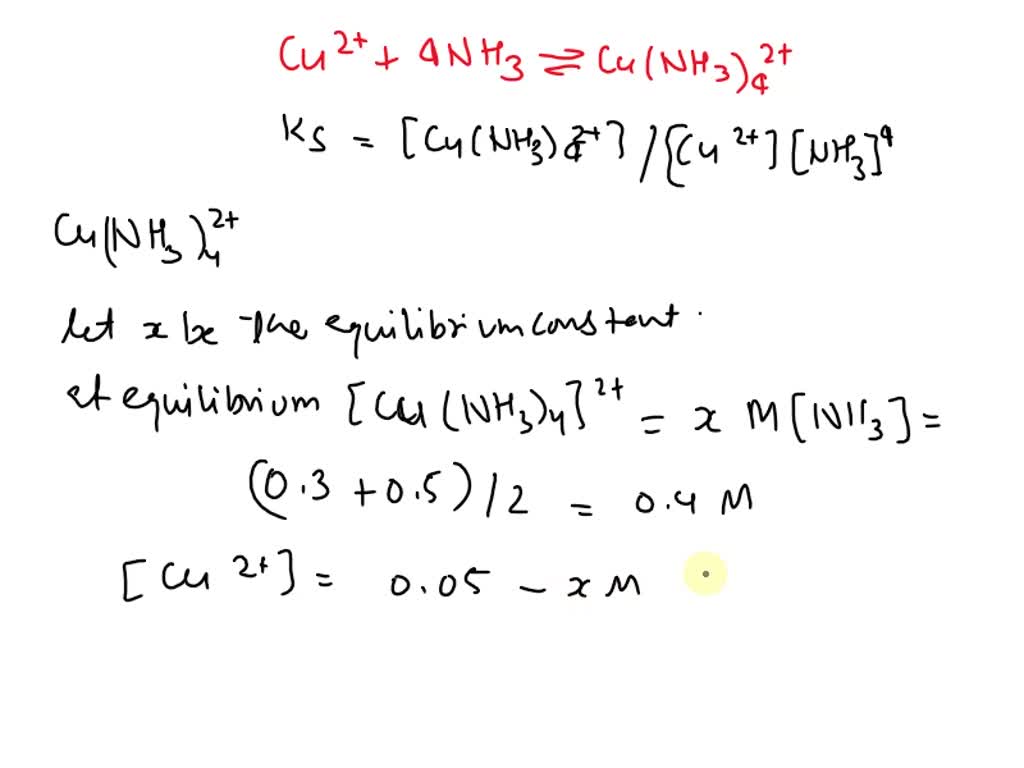 Cu 2+ + 4NH3 ⇌ Cu(NH3)4 2+
Ks = [Cu(NH3)4 2+] / [Cu 2+][NH3]4
Cu(NH3)4 2+
let x be the equilibrium constant.
at equilibrium [Cu(NH3)4] 2+ = x M [NH3] =
(0.3 + 0.5) / 2 = 0.4 M
[Cu 2+] = 0.05 - x M